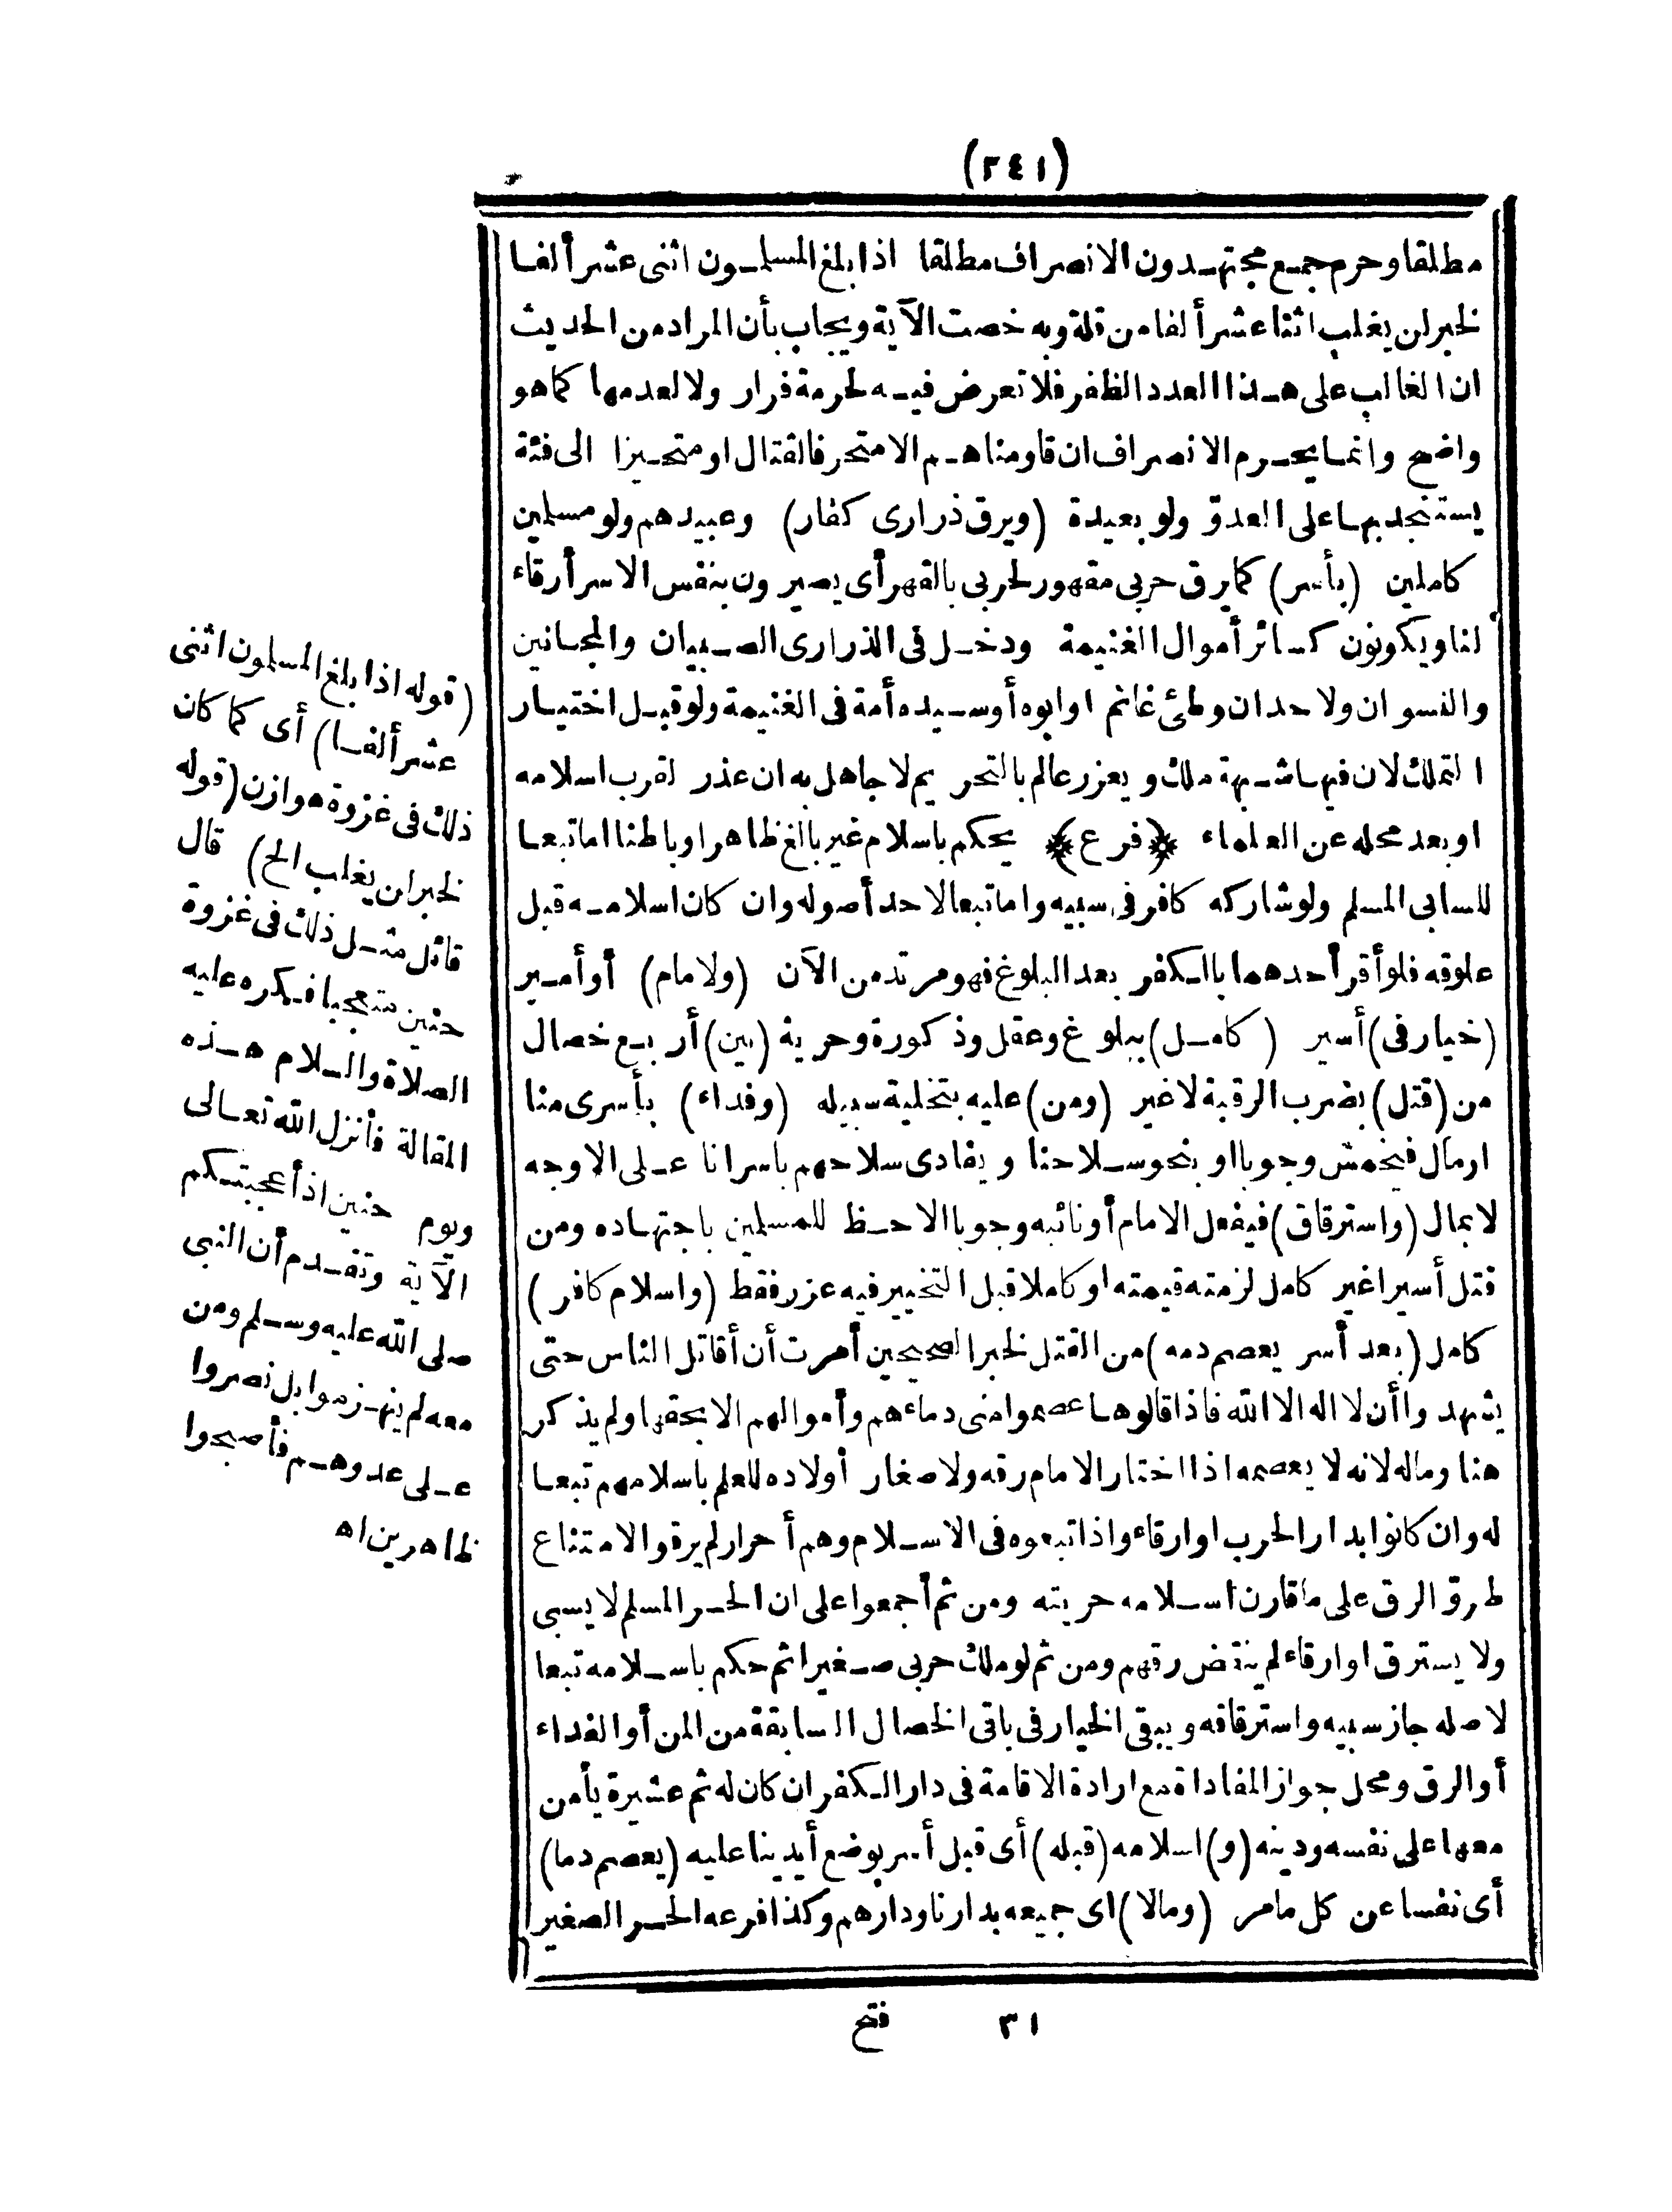 (٢٤١)
مطلقا وحرم جمع مجتهدون الانصراف مطلقا اذا بلغ المسلمون اثنى عشر ألفا
لخبر لن يغلب اثنا عشر ألفا من قلة وبه خصت الآية ويجاب بأن المراد من الحديث
ان الغالب على هذا العدد الظفر فلا تعرض فيه لحرمة فرار ولا لعدمها كما هو
واضح وانما يحرم الانصراف ان قاومناهم الا متحرفا لقتال او متحيزا الى فئة
يستنجد بها على العدوّ ولو بعيدة (ويرق ذرارى كفار) وعبيدهم ولو مسلمين
كاملين (بأسر) كما يرق حربى مقهور لحربى بالقهر أى يصيرون بنفس الاسر أرقاء
لنا ويكونون كسائر أموال الغنيمة ودخل فى الذرارى الصبيان والمجانين
والنسوان ولا حد ان وطئ غانم او ابوه أو سيده أمة فى الغنيمة ولو قبل اختيار
التملك لان فيها شبهة ملك ويعزر عالم بالتحريم لا جاهل به ان عذر لقرب اسلامه
او بعد محله عن العلماء ﴿فرع﴾ يحكم باسلام غير بالغ ظاهرا وباطنا اما تبعا
للسابى المسلم ولو شاركه كافر فى سبيه واما تبعا لاحد أصوله وان كان اسلامه قبل
علوقه فلو أقر أحدهما بالكفر بعد البلوغ فهو مرتد من الآن (ولامام) أو أمير
(خيار فى) أسير (كامل) ببلوغ وعقل وذكورة وحرية (بين) أربع خصال
من (قتل) بضرب الرقبة لا غير (ومن) عليه بتخلية سبيله (وفداء) بأسرى منا
او مال فيخمس وجوبا او بنحو سلاحنا ويفادى سلاحهم باسرانا على الاوجه
لا بمال (واسترقاق) فيفعل الامام أو نائبه وجوبا الاحظ للمسلمين باجتهاده ومن
قتل أسيرا غير كامل لزمته قيمته او كاملا قبل التخيير فيه عزر فقط (واسلام كافر)
كامل (بعد أسر يعصم دمه) من القتل لخبر الصحيحين أمرت أن أقاتل الناس حتى
يشهدوا أن لا اله الا الله فاذا قالوها عصموا منى دماءهم وأموالهم الا بحقها ولم يذكر
هنا وماله لانه لا يعصمه اذا اختار الامام رقه ولا صغار أولاده للعلم باسلامهم تبعا
له وان كانوا بدار الحرب او ارقاء واذا تبعوه فى الاسلام وهم أحرار لم يرقوا لامتناع
طرو الرق على ما قارن اسلامه حريته ومن ثم أجمعوا على ان الحر المسلم لا يسبى
ولا يسترق او ارقاء لم ينقض رقهم ومن ثم لو ملك حربى صغيرا ثم حكم باسلامه تبعا
لاصله جاز سبيه واسترقاقه ويبقى الخيار فى باقى الخصال السابقة من المن أو الفداء
أو الرق ومحل جواز المفاداة مع ارادة الاقامة فى دار الكفر ان كان له ثم عشيرة يأمن
معها على نفسه ودينه (و) اسلامه (قبله) أى قبل أسر بوضع أيدينا عليه (يعصم دما)
أى نفسا عن كل مامر (ومالا) اى جميعه بدارنا ودارهم وكذا فرعه الحر الصغير
٣١ فتح
(قوله اذا بلغ المسلمون اثنى
عشر ألفا) أى كما كان
ذلك فى غزوة هوازن (قوله
لخبر لن يغلب الخ) قال
قائل مثل ذلك فى غزوة
حنين متعجبا فكره عليه
الصلاة والسلام هذه
المقالة فأنزل الله تعالى
ويوم حنين اذ أعجبتكم
الآية وتقدم أن النبى
صلى الله عليه وسلم ومن
معه لم ينهزموا بل نصروا
على عدوهم فأصبحوا
ظاهرين اه